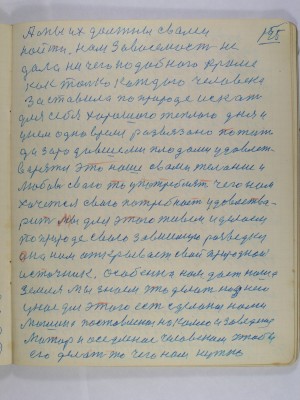 155
А мы их должны сами
найти. Нам Зависемост не
дала ничего подобного кроме
как только каждого человека
Заставила по природе искат
для себя хорошого теплого дня и
цем одновремя
да зародившеми плодами удовлет
это наше свами желание и
Любов своего то употреблят чего нам
хочется свою потребност удовлетво
рит. Мы для этого живем и
по природе свою разведку
она нам открывает свой природной
источник. Особенно нам дает наша
Земля Мы знаем это делат надно
у нас для этого ест сделаны нами
Машины поставлены на колесо и заведен
Матор и оседланое человеком чтобы
его делат то чего нам нужно